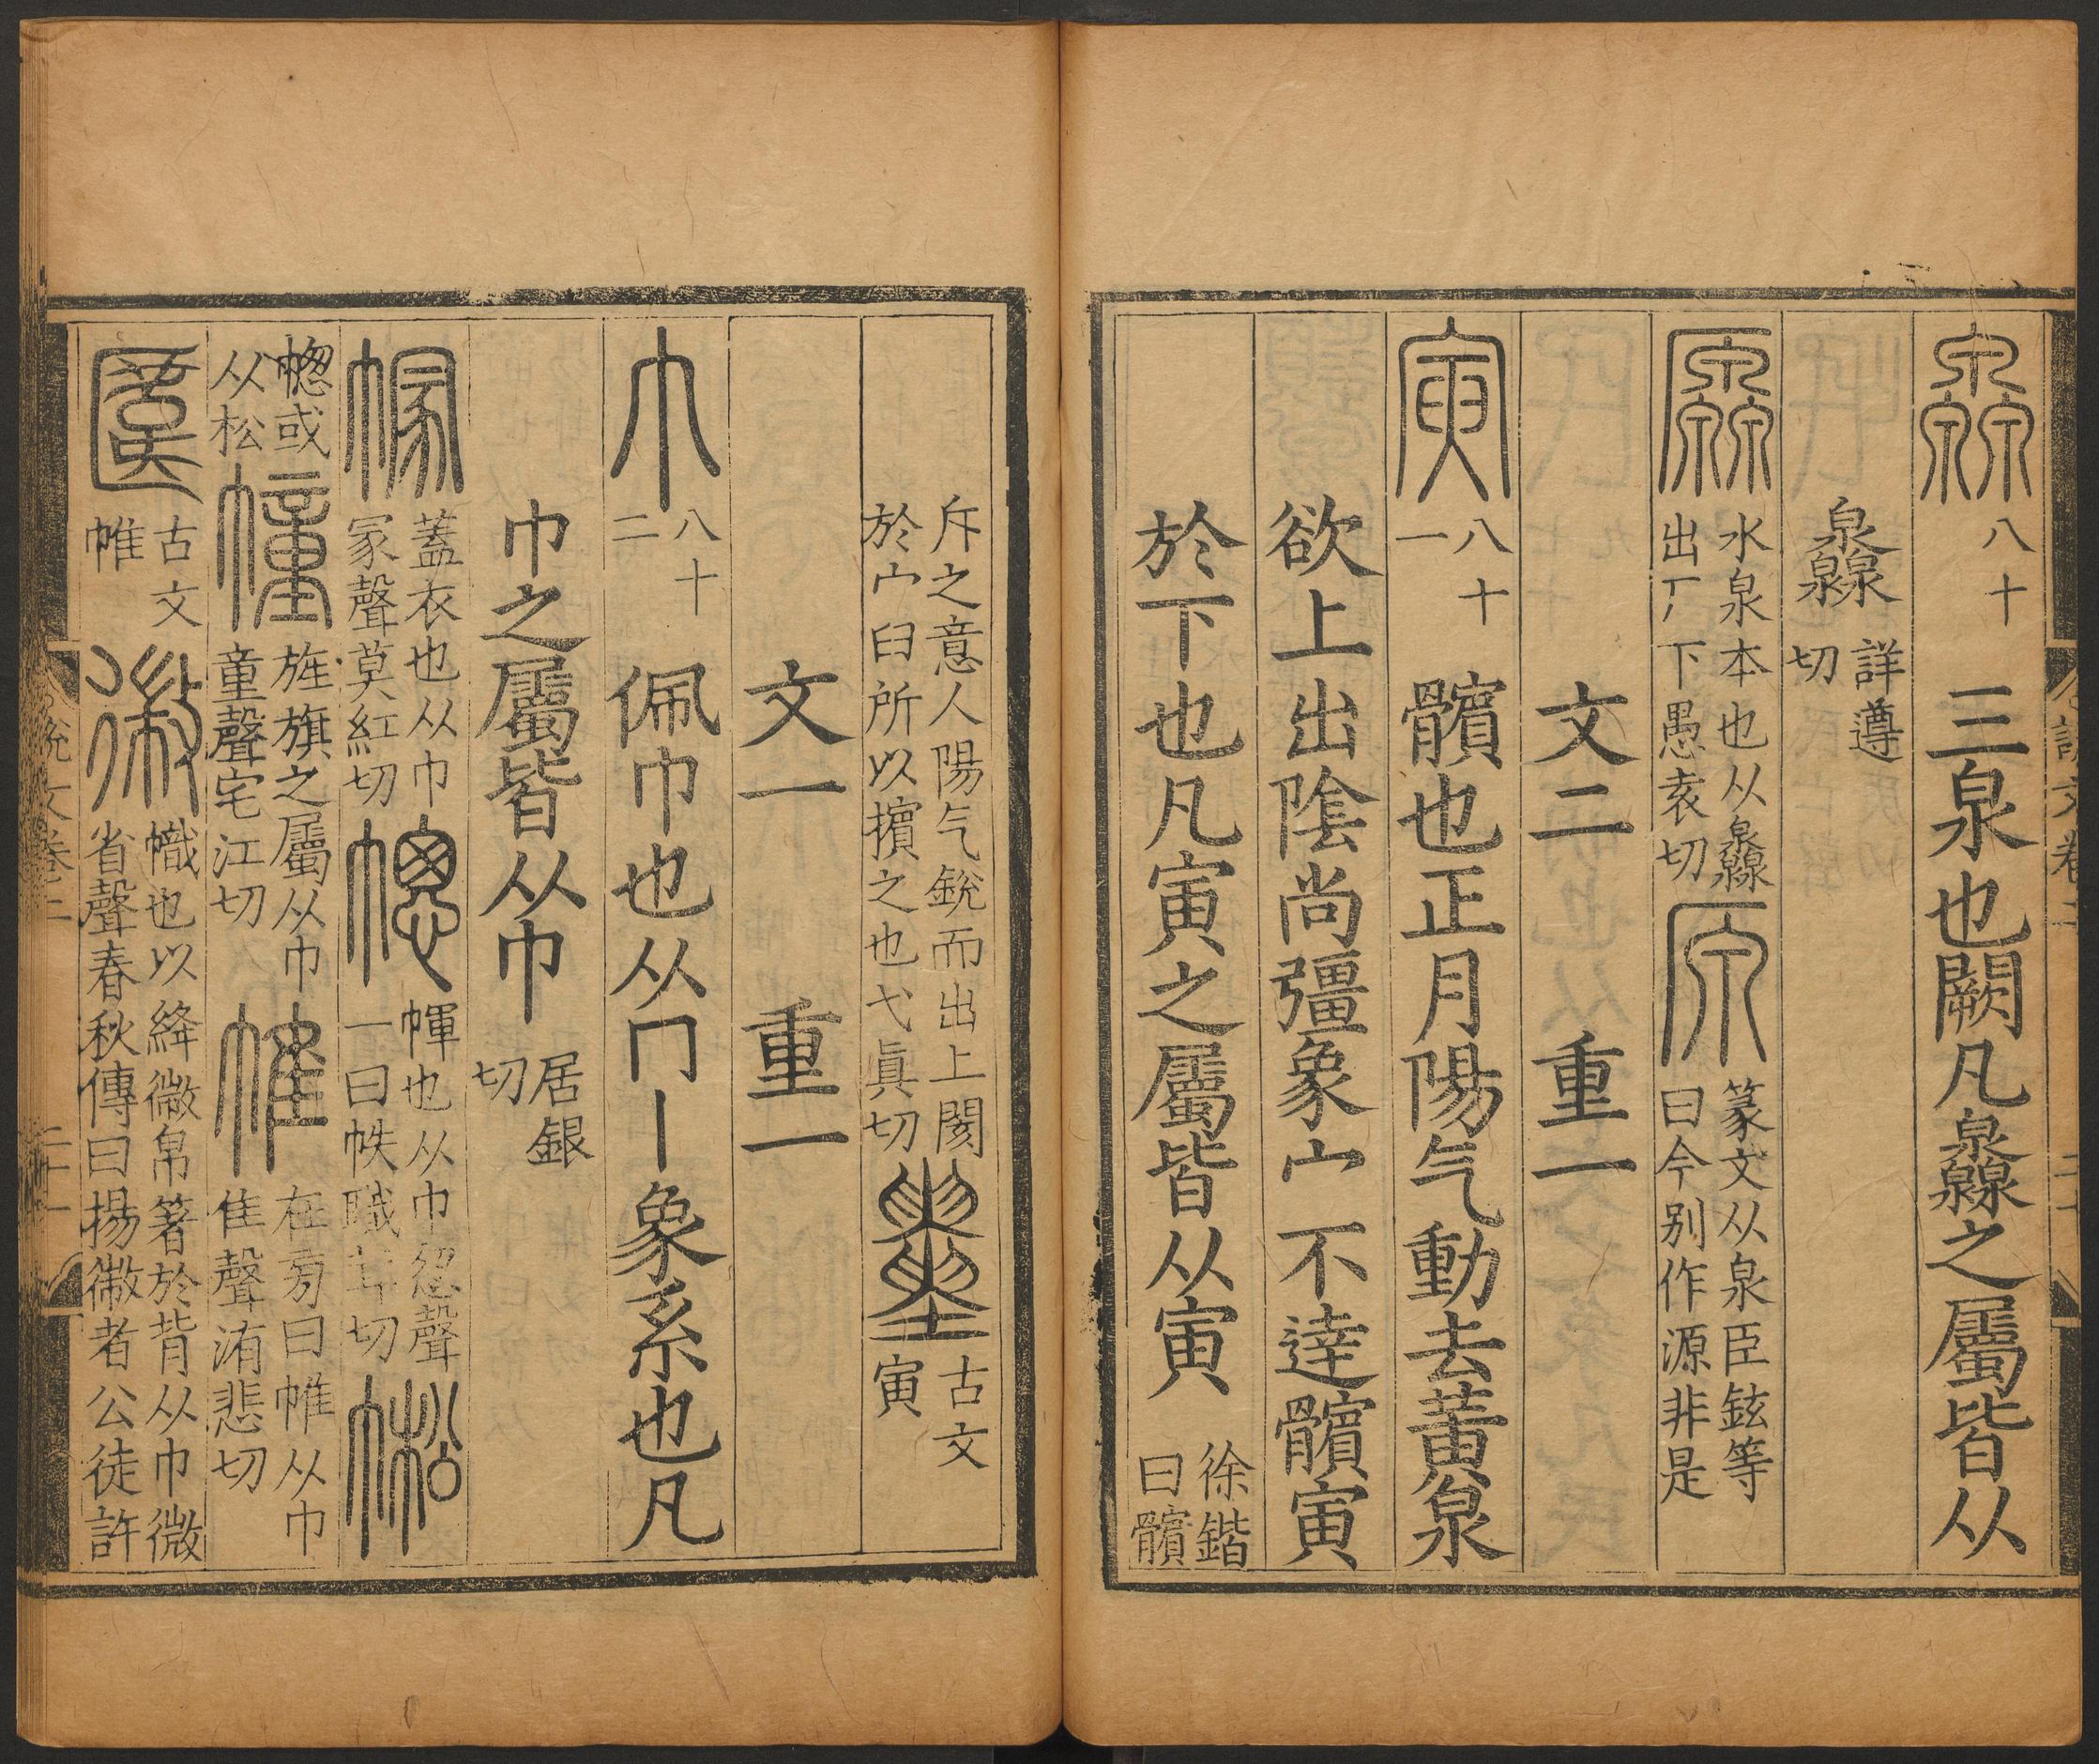 灥 八十 三泉也闕凡灥之屬皆从
灥 詳遵切
厵 水泉本也从灥出厂下愚袁切 原 篆文从泉臣鉉等曰今别作源非是
文二 重一
寅 八十一 髕也正月陽气動去黃泉
欲上出陰尚彊象宀不達髕寅
於下也凡寅之屬皆从寅 徐鍇曰髕
斥之意人陽气銳而出上閡於宀臼所以擯之也弋眞切 𡒗 古文寅
文一 重一
巾 八十二 佩巾也从冂丨象系也凡
巾之屬皆从巾 居銀切
幏 蓋衣也从巾冡聲莫紅切 幒 㡓也从巾怱聲一曰帙職茸切 㡆
幒或从松 幢 旌旗之屬从巾童聲宅江切 帷 在㫄曰帷从巾隹聲洧悲切
𠥎 古文帷 微 幟也以絳微帛箸於背从巾微省聲春秋傳曰揚幑者公徒許
說文卷二 二十一